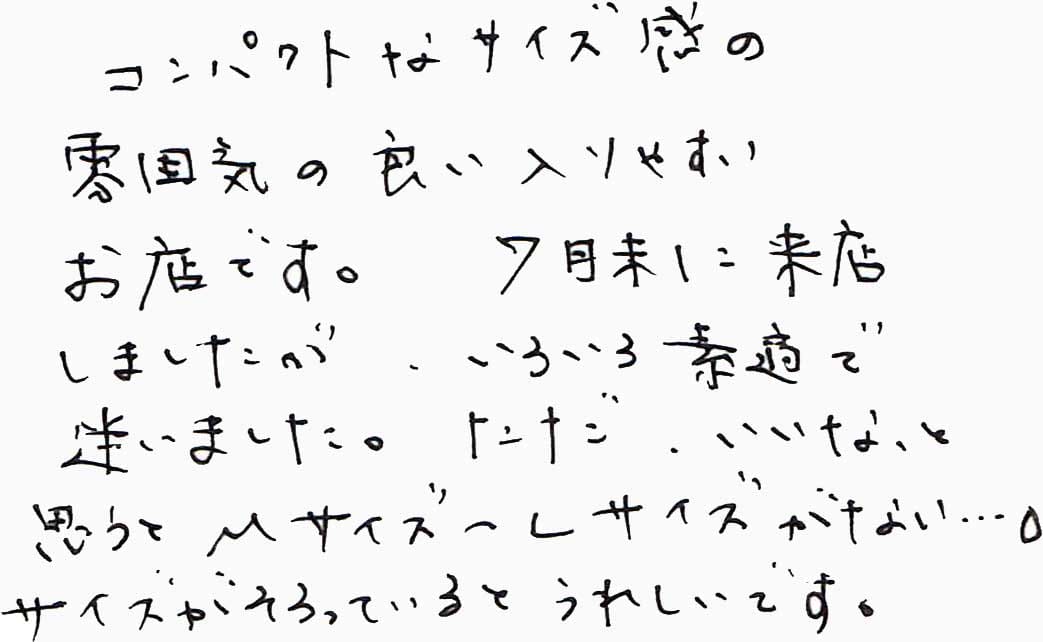 コンパクトなサイズ感の
雰囲気の良い入りやすい
お店です。 7月末に来店
しましたが、いろいろ素適で
迷いました。ただ、いいな、と
思うて Mサイズ〜Lサイズがない…。
サイズがそろっているとうれしいです。